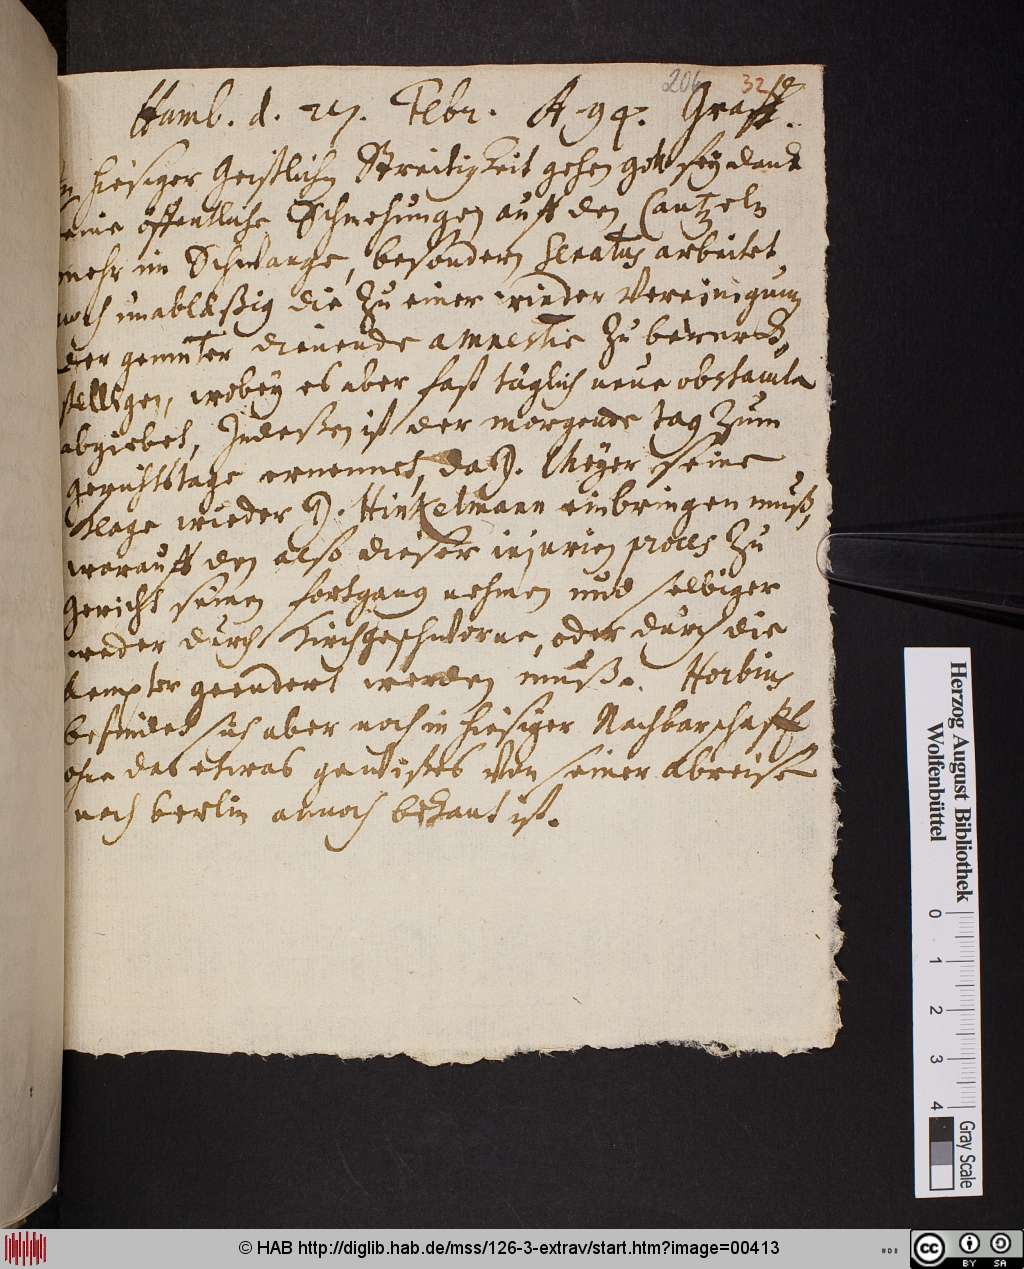 206 321
Hamb. d. 27. Febr. A 94. Graff.
In hiesiger Geistlichen Streitigkeit gehen gott sey danck
keine öffentliche Schmehungen auff den Cantzeln
mehr im Schwange, besondern Senatus arbeitet
noch unabläßig die zu einer wieder Vereinigung
der gemüter dienende amnestie zu bewerck-
stelligen, wobey es aber fast täglich neue obstacula
abgiebet, Indeßen ist der morgende tag zum
gerichtstage ernennet, da D. Meyer seine
Klage wieder D. Hinkelmann einbringen muß,
worauff den also dieser injurien proces zu
gericht seinen fortgang nehmen und selbiger
weder durch Kirchgeschworne, oder durch die
Aempter geendert werden muß. Horbius
befindet sich aber noch in hiesiger Nachbarschafft
ohne das etwas gewißes von seiner abreise
nach berlin annoch bekant ist.
Herzog August Bibliothek
Wolfenbüttel
0 1 2 3 4
Gray Scale
© HAB http://diglib.hab.de/mss/126-3-extrav/start.htm?image=00413
cc BY SA